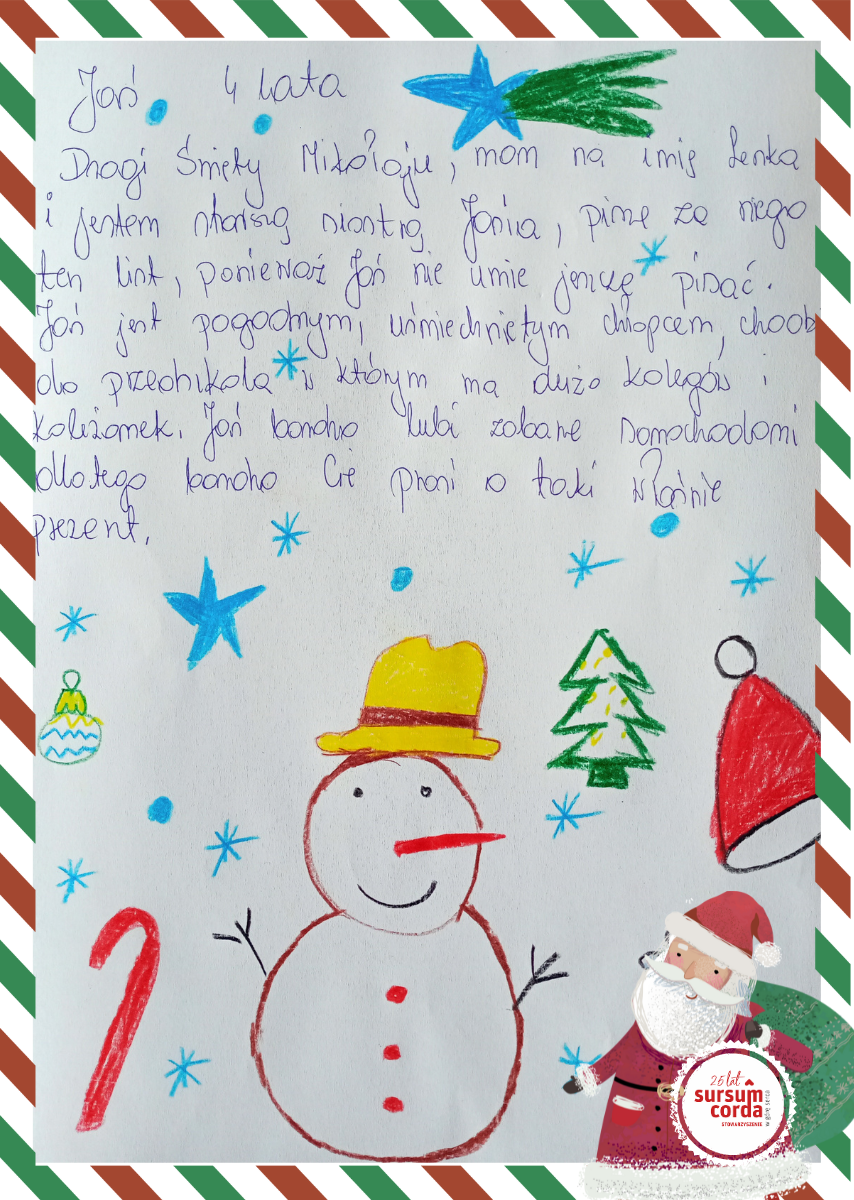 Jaś 4 lata
Drogi Święty Mikołaju, mam na imię Lenka
i jestem starszą siostrą Jasia, piszę za niego
ten list, ponieważ Jaś nie umie jeszcze pisać.
Jaś jest pogodnym, uśmiechniętym chłopcem, chodzi
do przedszkola w którym ma dużo kolegów i
koleżanek. Jaś bardzo lubi zabawę samochodami
dlatego bardzo Cię prosi o taki właśnie
prezent.
26 lat
sursum
corda
STOWARZYSZENIE
w górę serca